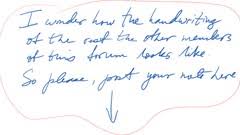 I wonder how the handwriting
of the rest the other members
of this forum looks like
So please, post your nots here